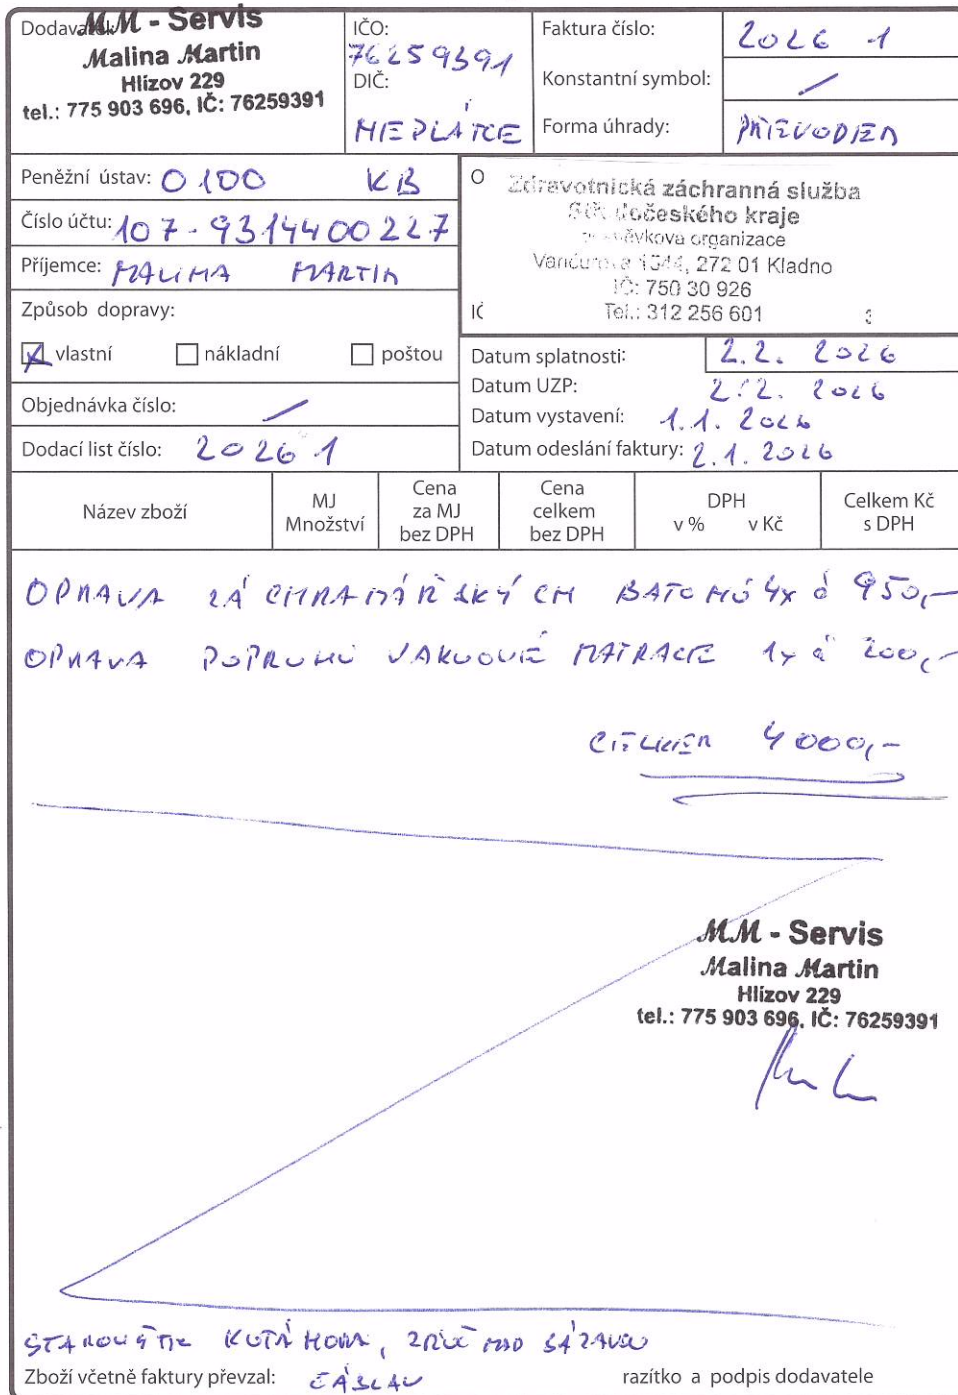 Dodavatel:
MM - Servis
Malina Martin
Hlízov 229
tel.: 775 903 696, IČ: 76259391
IČO:
76259391
DIČ:
NEPLÁTCE
Faktura číslo: 2026 1
Konstantní symbol: /
Forma úhrady: PŘEVODEM
Peněžní ústav: 0100 KB
Číslo účtu: 107-9314400227
Příjemce: MALINA MARTIN
Způsob dopravy:
vlastní nákladní poštou
Objednávka číslo: /
Dodací list číslo: 2026 1
O
Zdravotnická záchranná služba
Středočeského kraje
příspěvková organizace
Vančurova 1544, 272 01 Kladno
IČ: 750 30 926
IČ Tel.: 312 256 601
Datum splatnosti: 2.2. 2026
Datum UZP: 2.2. 2026
Datum vystavení: 1.1. 2026
Datum odeslání faktury: 2.1. 2026
Název zboží
MJ
Množství
Cena
za MJ
bez DPH
Cena
celkem
bez DPH
DPH
v % v Kč
Celkem Kč
s DPH
OPRAVA ZÁCHRANÁŘSKÝCH BATOHŮ 4x á 950,-
OPRAVA POPRUHŮ VAKUOVÉ MATRACE 1x á 200,-
CELKEM 4000,-
MM - Servis
Malina Martin
Hlízov 229
tel.: 775 903 696, IČ: 76259391
KUTNÁ HORA, ZRUČ NAD SÁZAVOU
Zboží včetně faktury převzal: ČÁSLAV
razítko a podpis dodavatele